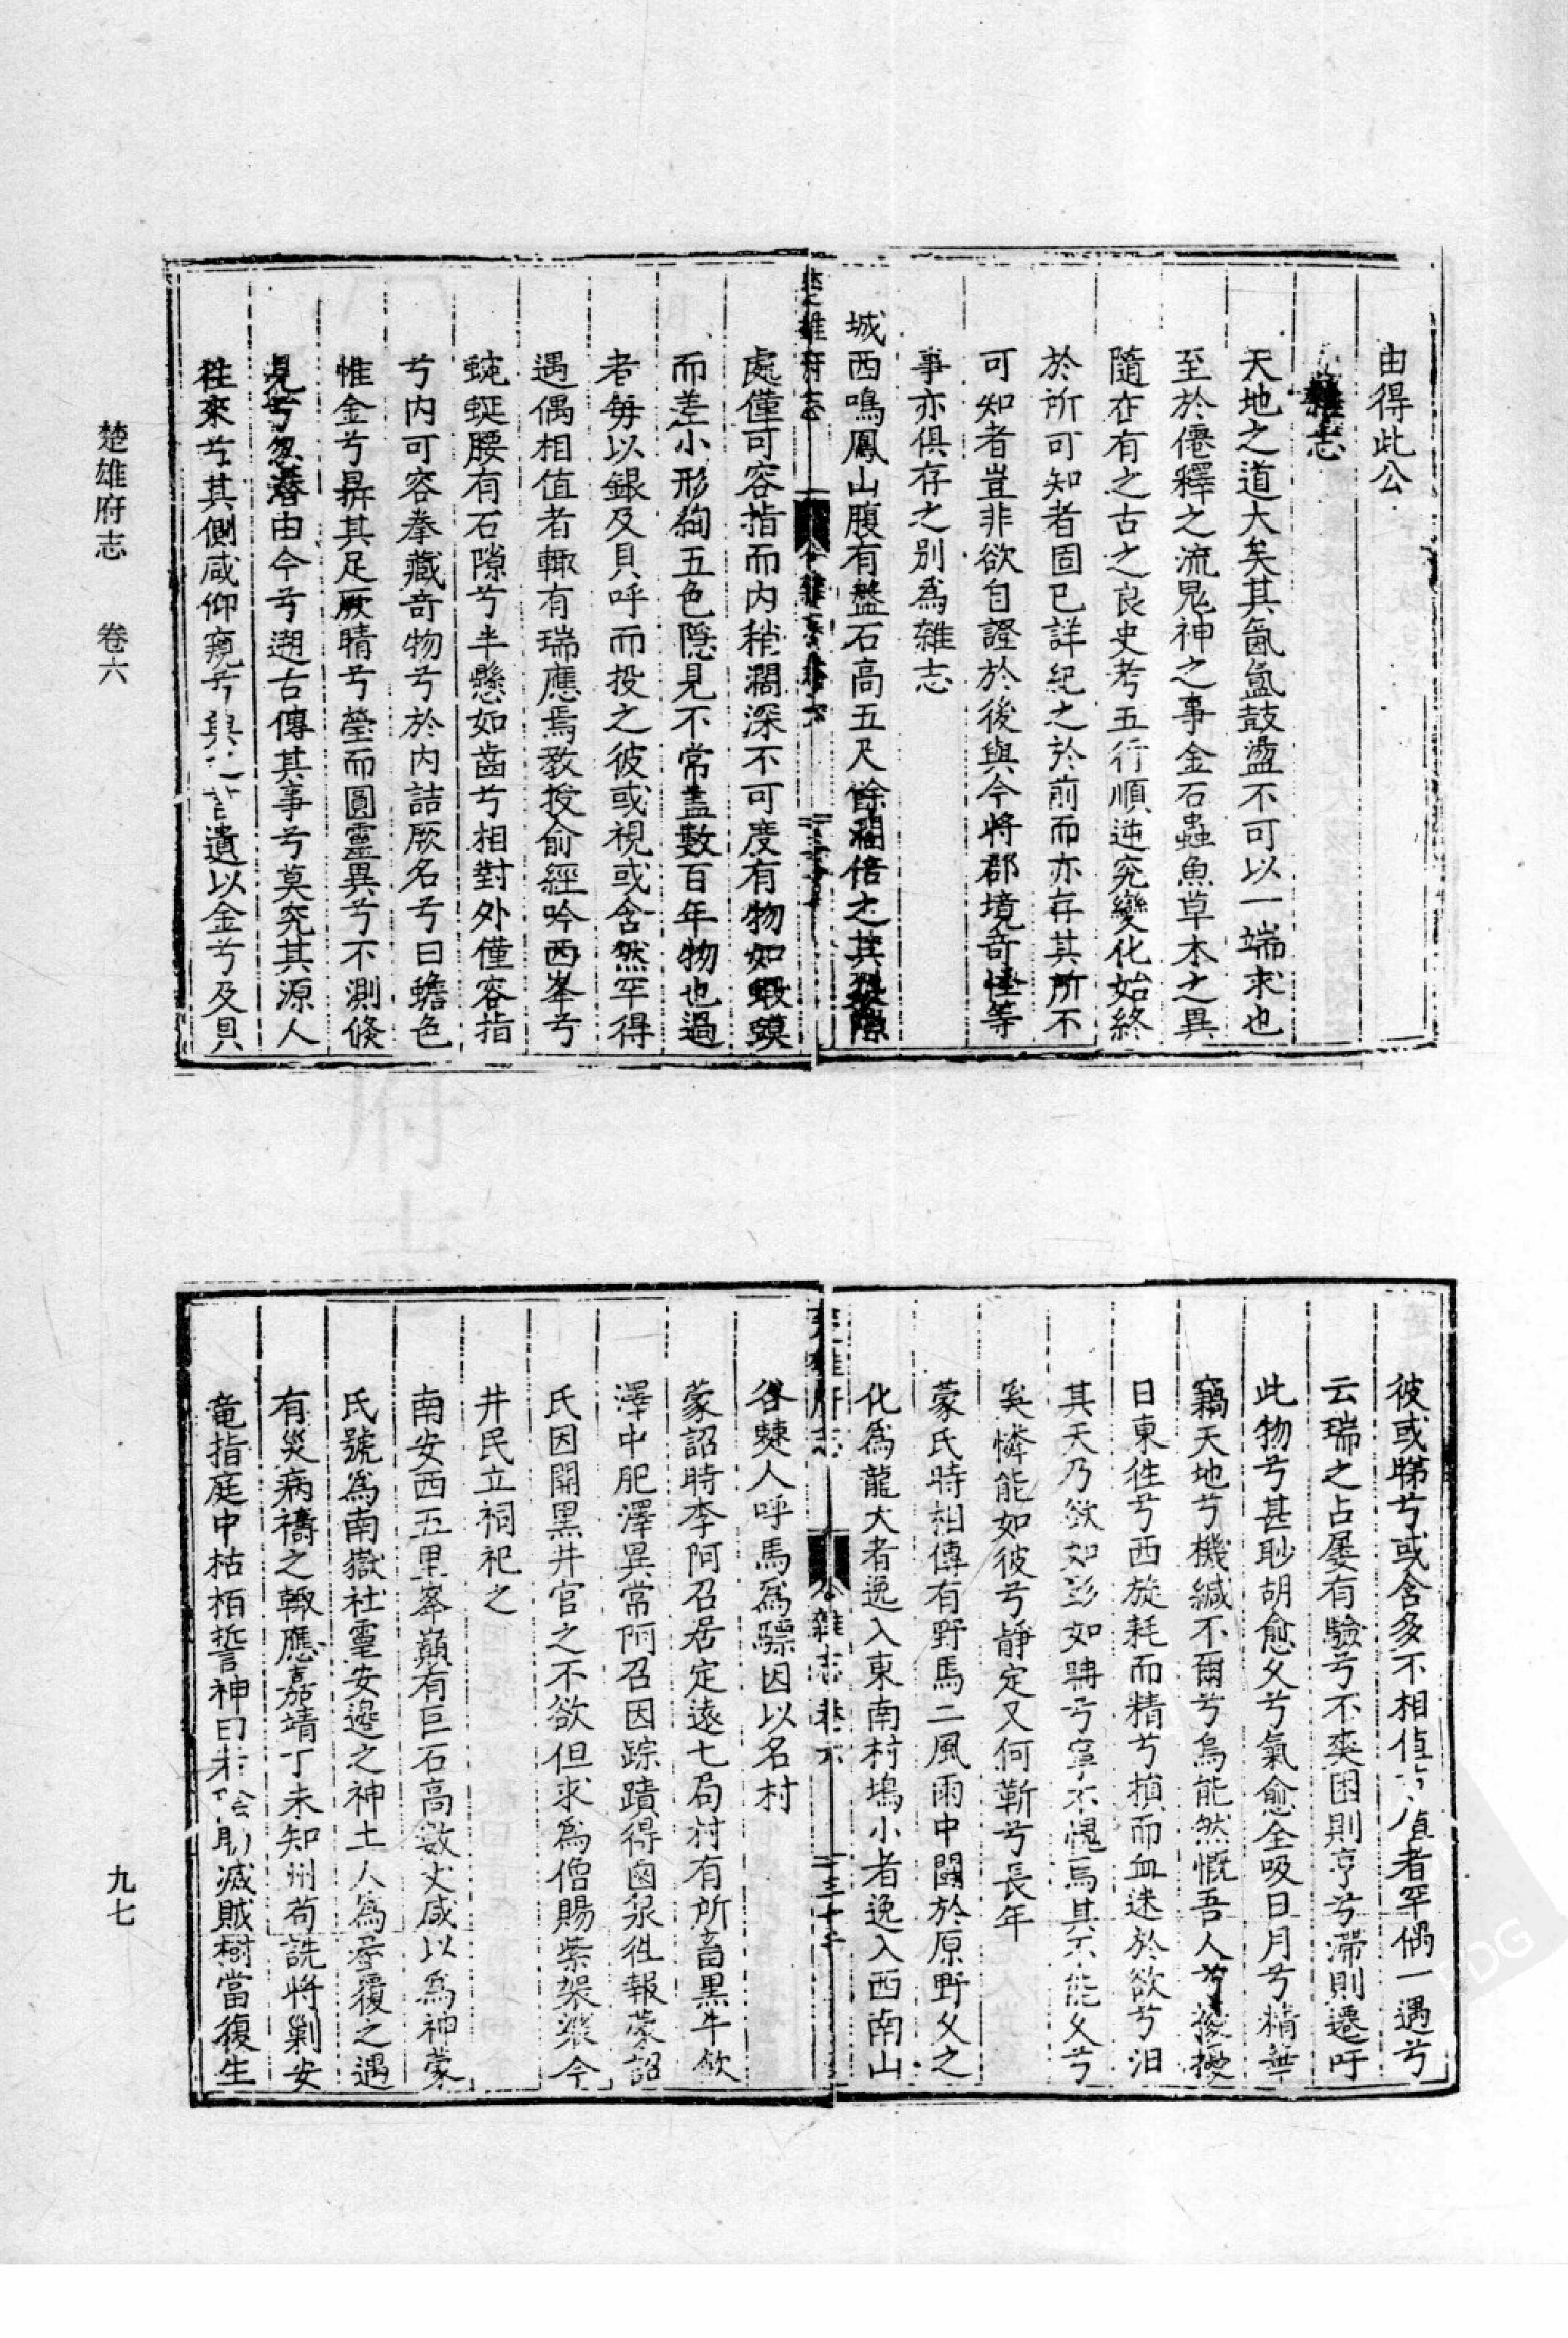 由得此公
雜志
天地之道大矣其氤氳鼓盪不可以一端求也
至於僊釋之流鬼神之事金石蟲魚草木之異
隨在有之古之良史考五行順迕究變化始終
於所可知者固已詳紀之於前而亦存其所不
可知者豈非欲自證於後與今將郡境奇怪等
事亦俱存之别為雜志
城西鳴鳳山腹有盤石高五尺餘濶倍之其裂隙
楚雄府志
卷六
處僅可容指而内稍濶深不可度有物如蝦蟆
而差小形絢五色隱見不常盖數百年物也過
者每以銀及貝呼而投之彼或視或含然罕得
遇偶相值者輒有瑞應焉教授俞經吟西峯兮
蜿蜒腰有石隙兮半懸如齒兮相對外僅容指
兮内可容拳藏奇物兮於内詰厥名兮曰蟾色
惟金兮鼎其足厥睛兮瑩而圓靈異兮不測倏
見兮忽潜由今兮遡古傳其事兮莫究其源人
徃來兮其側咸仰窺兮與遺以金兮及貝
彼或睇兮或含多不相值者罕偶一遇兮
云瑞之占屡有驗兮不爽困則亨兮滯則遷吁
此物兮甚眇胡愈久兮氣愈全吸日月兮精華
竊天地兮機緘不爾兮烏能然慨吾人兮擾
日東徃兮西旋耗而精兮損而血迷於欲兮汨
其天乃欲如彭如聃兮寧不愧焉其不能久兮
奚憐能如彼兮靜定又何靳兮長年
蒙氏時相傳有野馬二風雨中鬪於原野久之
化為龍大者逸入東南村塢小者逸入西南山
楚雄府志
雜志
卷六
三十
谷僰人呼馬為驃因以名村
蒙詔時李阿召居定遠七局村有所畜黒牛飲
澤中肥澤異常阿召因踪蹟得鹵泉徃報蒙詔
氏因開黒井官之不欲但求為僧賜紫袈裟今
井民立祠祀之
南安西五里峯巔有巨石高數丈咸以為神蒙
氏號為南嶽社靈安邉之神土人為屋覆之遇
有災病禱之輙應嘉靖丁未知州苟詵將剿安
竜指庭中枯栢誓神曰若助滅賊樹當復生
楚雄府志
卷六
九七